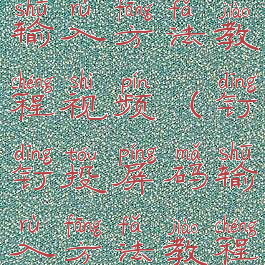 shū rù fāng fǎ jiào
输入方法教
chéng shì pín dīng
程视频（钉
dīng tóu píng mǎ shū
钉投屏码输
rù fāng fǎ jiào chéng
入方法教程